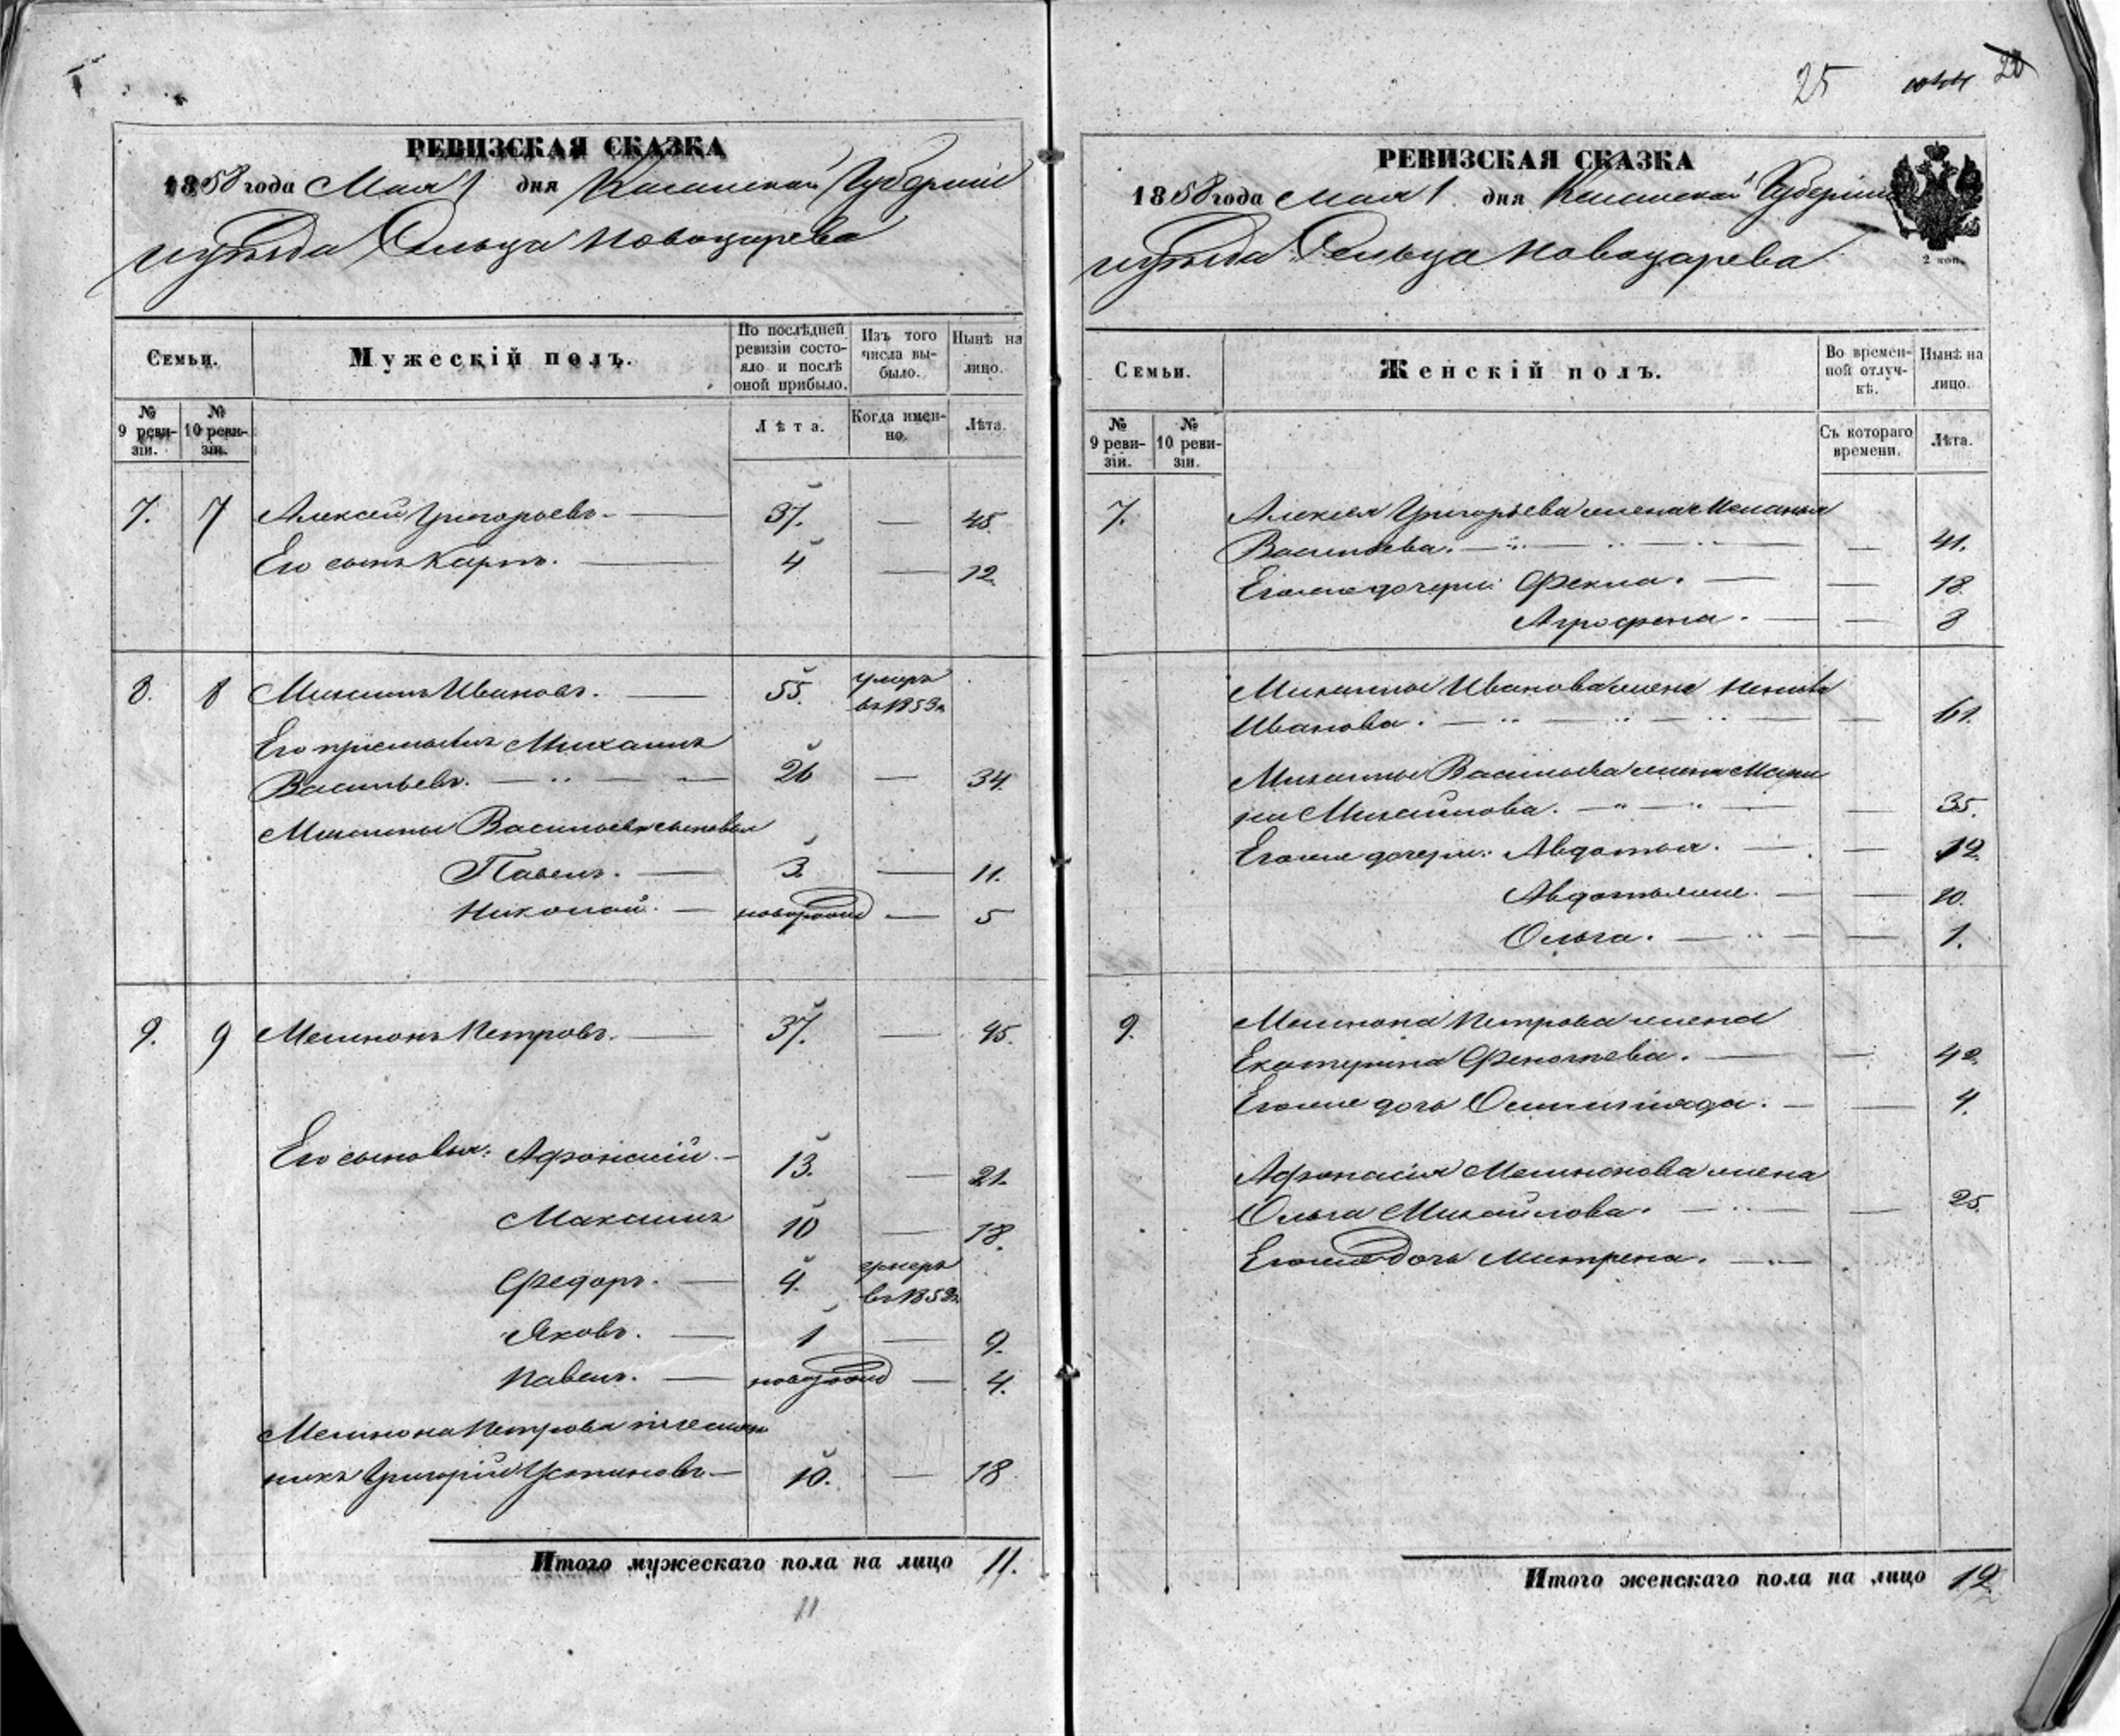 РЕВИЗСКАЯ СКАЗКА
1858 года Мая 1 дня Казанской Губерніи
уѣзда Сельца Новоцарева
Семьи.
Мужескій полъ.
По послѣдней ревизіи состояло и послѣ оной прибыло.
Изъ того числа выбыло.
Нынѣ на лицо.
№ 9 ревизіи.
№ 10 ревизіи.
Лѣта.
Когда именно.
Лѣта.
7. 7 Алексей Григорьевъ. — 37. — 45.
Его сынъ Карпъ. — 4 — 12.
8. 8 Михаилъ Ивановъ. — 55. умеръ въ 1853г
Его пріемышъ Михаилъ
Васильевъ. — 26 — 34.
Михаилы Васильева сыновья
Павелъ. — 3. — 11.
Николай. — новорожд — 5
9. 9 Мелинонъ Петровъ. — 37. — 45.
Его сыновья: Афонасій. — 13. — 21.
Максимъ 10 — 18.
Федоръ. — 4. умеръ
Яковъ. — 1 — 9.
Павелъ. — новорожд — 4.
Мелинона Петрова племян
никъ Григорій Устиновъ. — 10. — 18
Итого мужескаго пола на лицо 11.
11
25
20
РЕВИЗСКАЯ СКАЗКА
1858 года Мая 1 дня Казанской Губерніи
уѣзда Сельца Новоцарева
2 коп.
Семьи.
Женскій полъ.
Во временной отлучкѣ.
Нынѣ на лицо.
№ 9 ревизіи.
№ 10 ревизіи.
Съ котораго времени.
Лѣта.
7. Алексея Григорьева жена Меланья
Васильева. — — 41.
Егоже дочери: Фекла. — — 18.
Агрофена. — — 8
Михаилы Иванова жена
Иванова. — — 61.
Михаилы Васильева жена Мари
на Михайлова. — — 35.
Егоже дочери: Авдотья. — — 12.
Авдотья же. — — 10.
Ольга. — — 1.
9. Мелинона Петрова жена
Екатерина — — 42.
Егоже дочь — — 4.
Афонасія Мелинонова жена
Ольга Михайлова. — — 25.
Егоже дочь Митрена. —
Итого женскаго пола на лицо 12